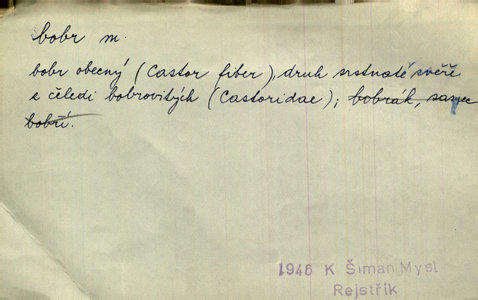 bobr m.
bobr obecný (Castor fiber), druh srstnaté zvěře
z čeledi bobrovitých (Castoridae); bobrák, samec
bobří.
1946 K Šiman Mysl
Rejstřík